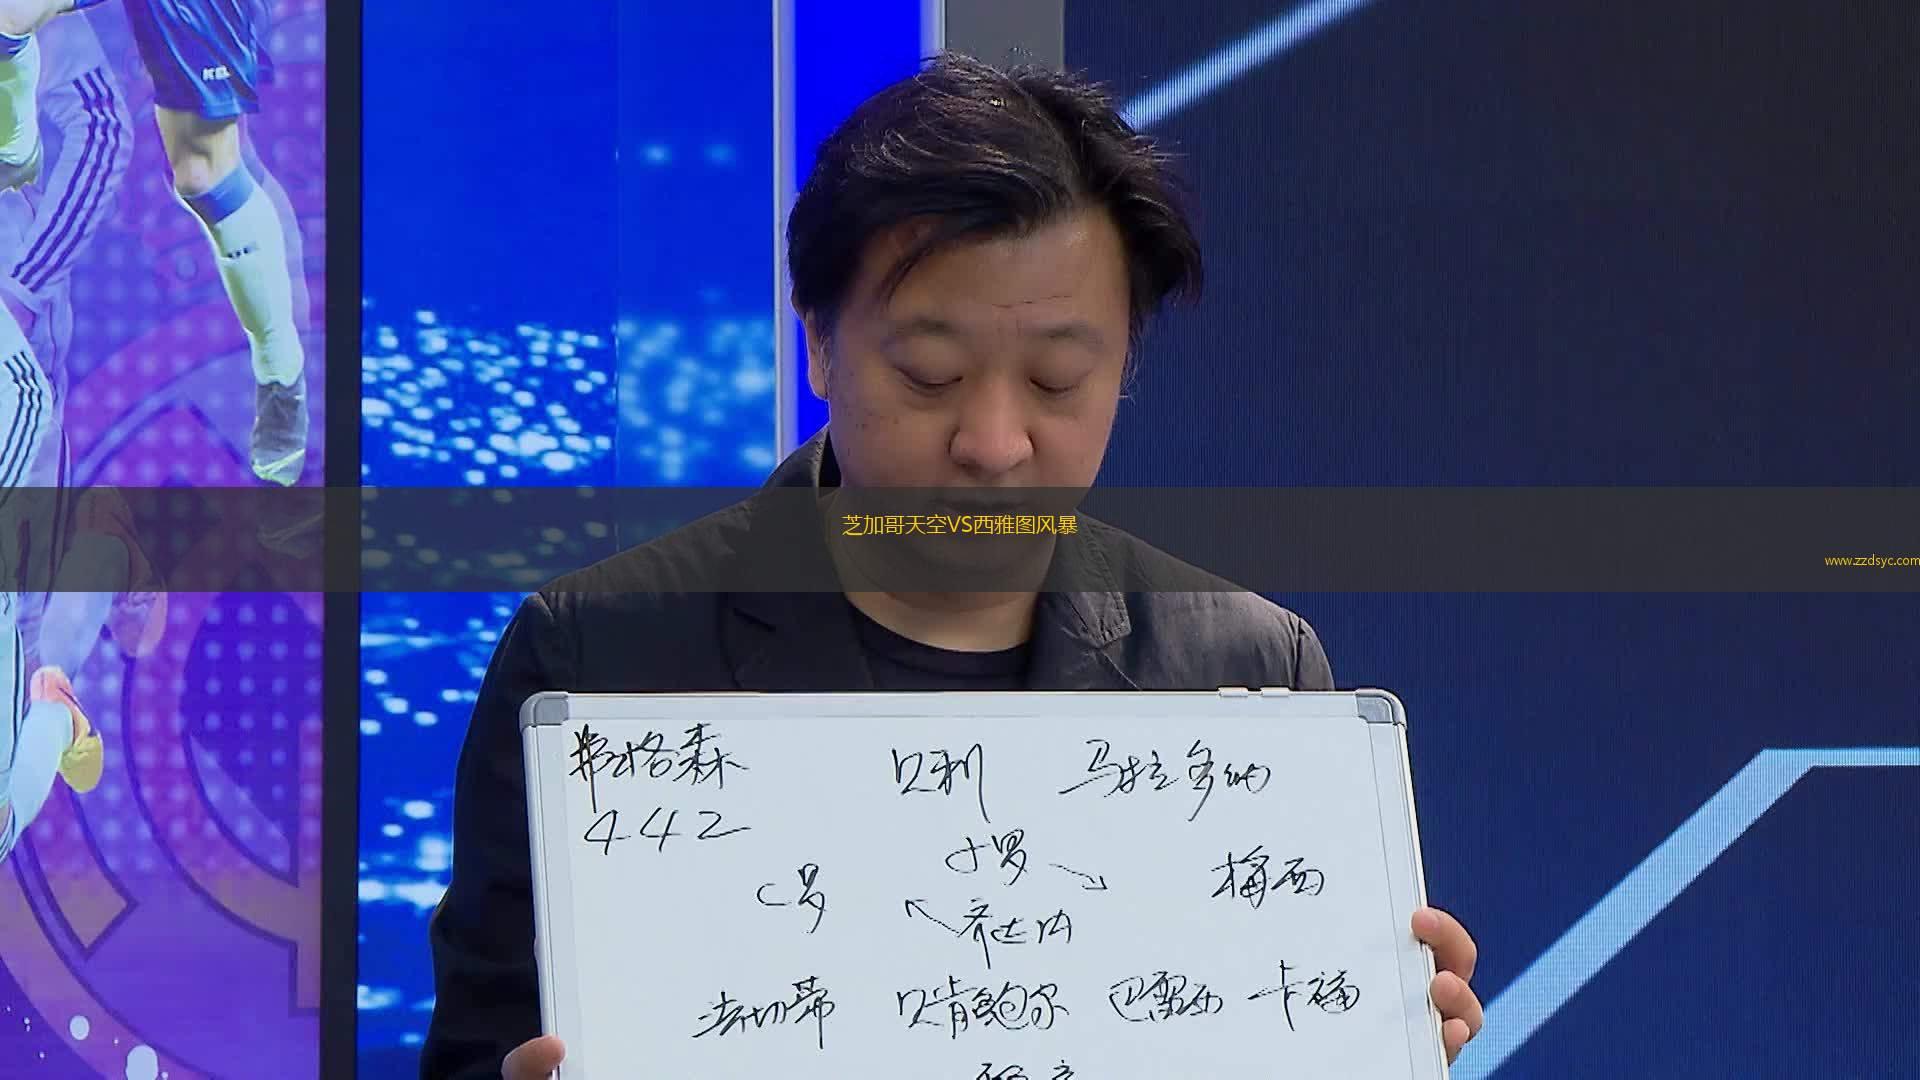 芝加哥天空VS西雅图风暴
www.zzdsyc.com
弗格森 贝利 马拉多纳
442
小罗
C罗 梅西
齐达内
法切蒂 贝肯鲍尔 巴雷西 卡福